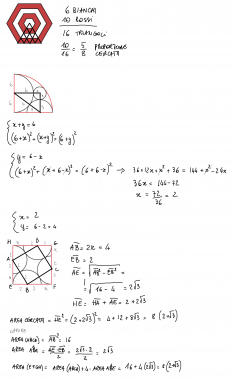 6 BIANCHI
10 ROSSI
16 TRIANGOLI
10/16 = 5/8 PROPORZIONE CERCATA
{ x+y=6
(6+x)²+(x+y)²=(6+y)²
{ y = 6-x
(6+x)²+(x+6-x)²=(6+6-x)² → 36+12x+x²+36 = 144+x²-24x
36x = 144-72
x = 72/36 = 2
{ x = 2
y = 6-2=4
H D G
A
C
E B F
AB = 2x = 4
EB = 2
AE = √(AB²-EB²) =
= √(16-4) = 2√3
HE = HA+AE = 2+2√3
AREA CERCATA = HE² = (2+2√3)² = 4+12+8√3 = 8(2+√3)
OPPURE
AREA (ABCD) = AB² = 16
AREA ABE = AE·EB/2 = 2√3·2/2 = 2√3
AREA (EFGH) = AREA (ABCD)+4·AREA ABE = 16+4(2√3) = 8(2+√3)